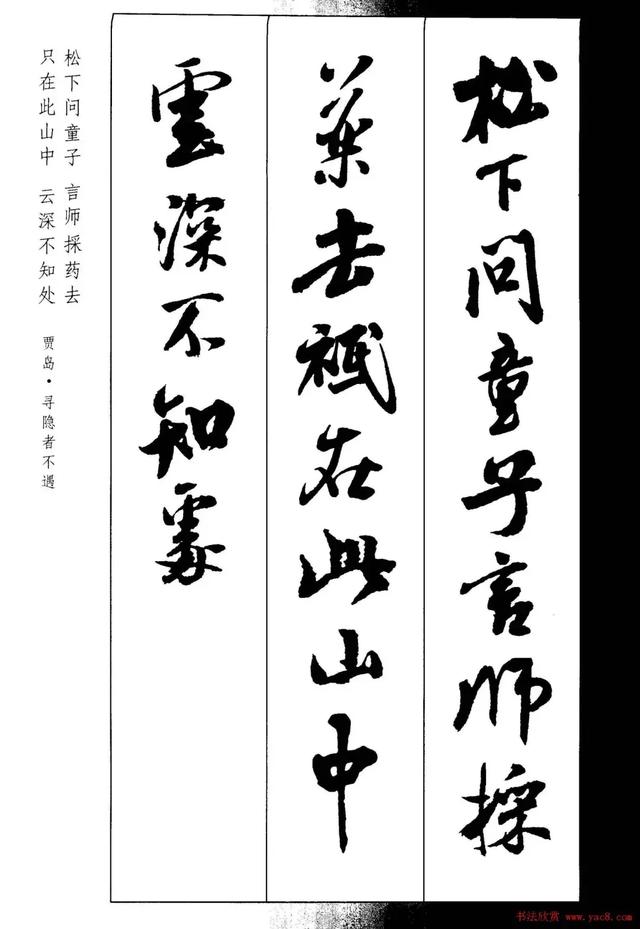 松下问童子言师採
藥去祇在此山中
雲深不知處
松下问童子 言师採药去
只在此山中 云深不知处
贾岛·寻隐者不遇
书法欣赏 www.yac8.com